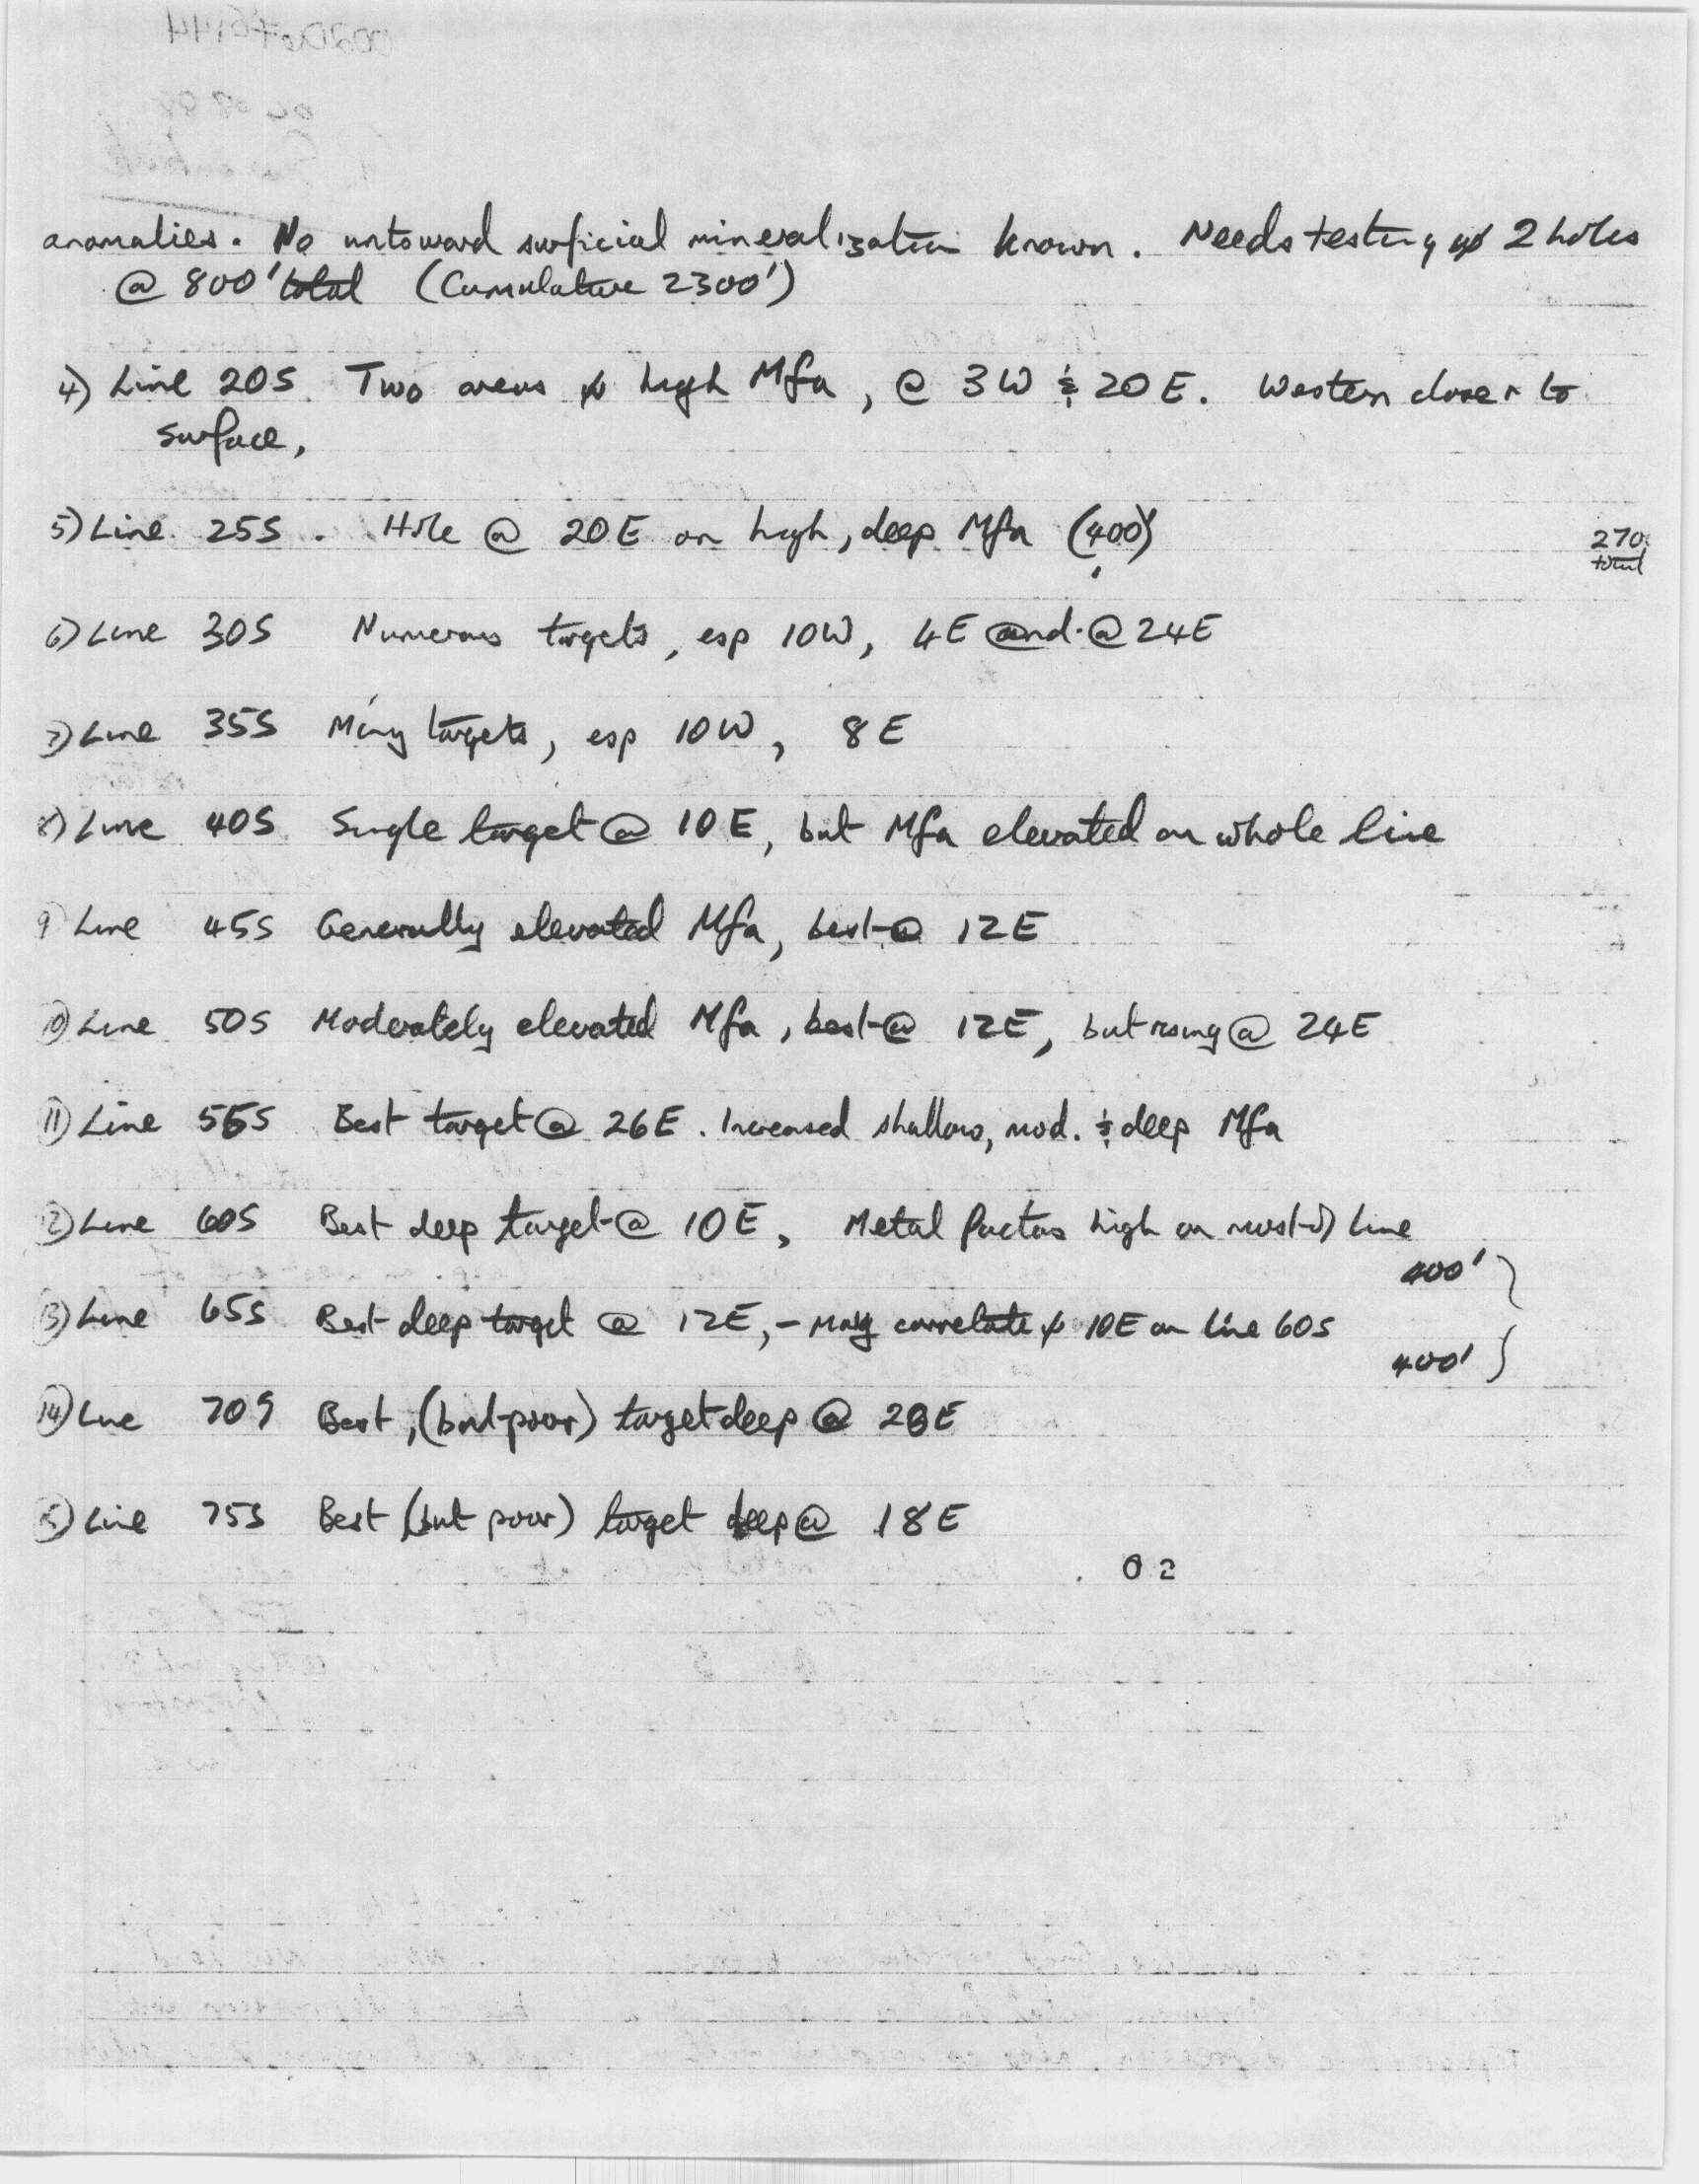 anomalies. No untoward surficial mineralization known. Needs testing w/ 2 holes
@ 800' total (Cumulative 2300')
4) Line 20S. Two areas w/ high Mfa, @ 3W & 20E. Western closer to
surface,
5) Line 25S. Hole @ 20E on high, deep Mfa (400')
270
total
6) Line 30S Numerous targets, esp 10W, 4E and @ 24E
7) Line 35S Many targets, esp 10W, 8E
8) Line 40S Single target @ 10E, but Mfa elevated on whole line
9) Line 45S Generally elevated Mfa, best @ 12E
10) Line 50S Moderately elevated Mfa, best @ 12E, but rising @ 24E
11) Line 55S Best target @ 26E. Increased shallow, mod. & deep Mfa
12) Line 60S Best deep target @ 10E, Metal factors high on most of line
400'
13) Line 65S Best deep target @ 12E, - May correlate w/ 10E on line 60S
400'
14) Line 70S Best, (but poor) target deep @ 28E
15) Line 75S Best (but poor) target deep @ 18E
02